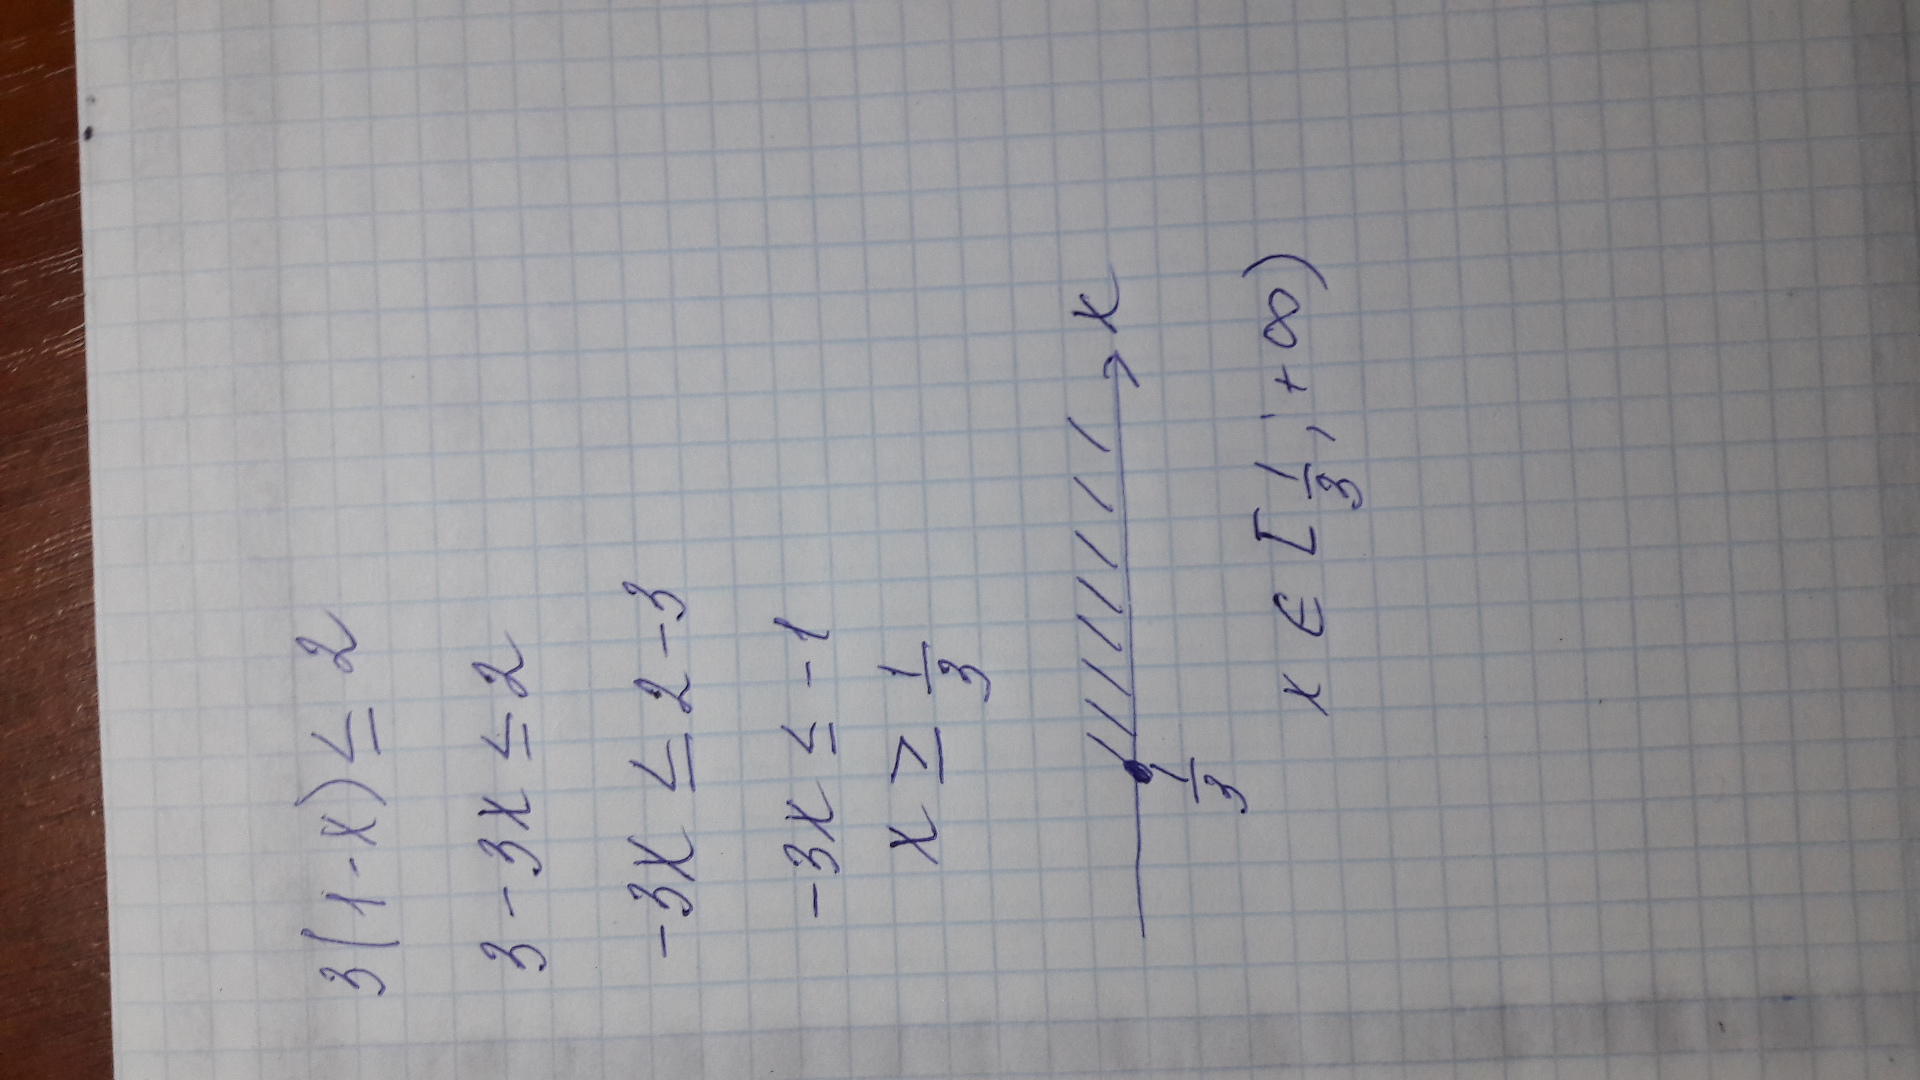 3(1-x) ≤ 2
3-3x ≤ 2
-3x ≤ 2-3
-3x ≤ -1
x ≥ 1/3
x
1/3
x ∈ [1/3; +∞)